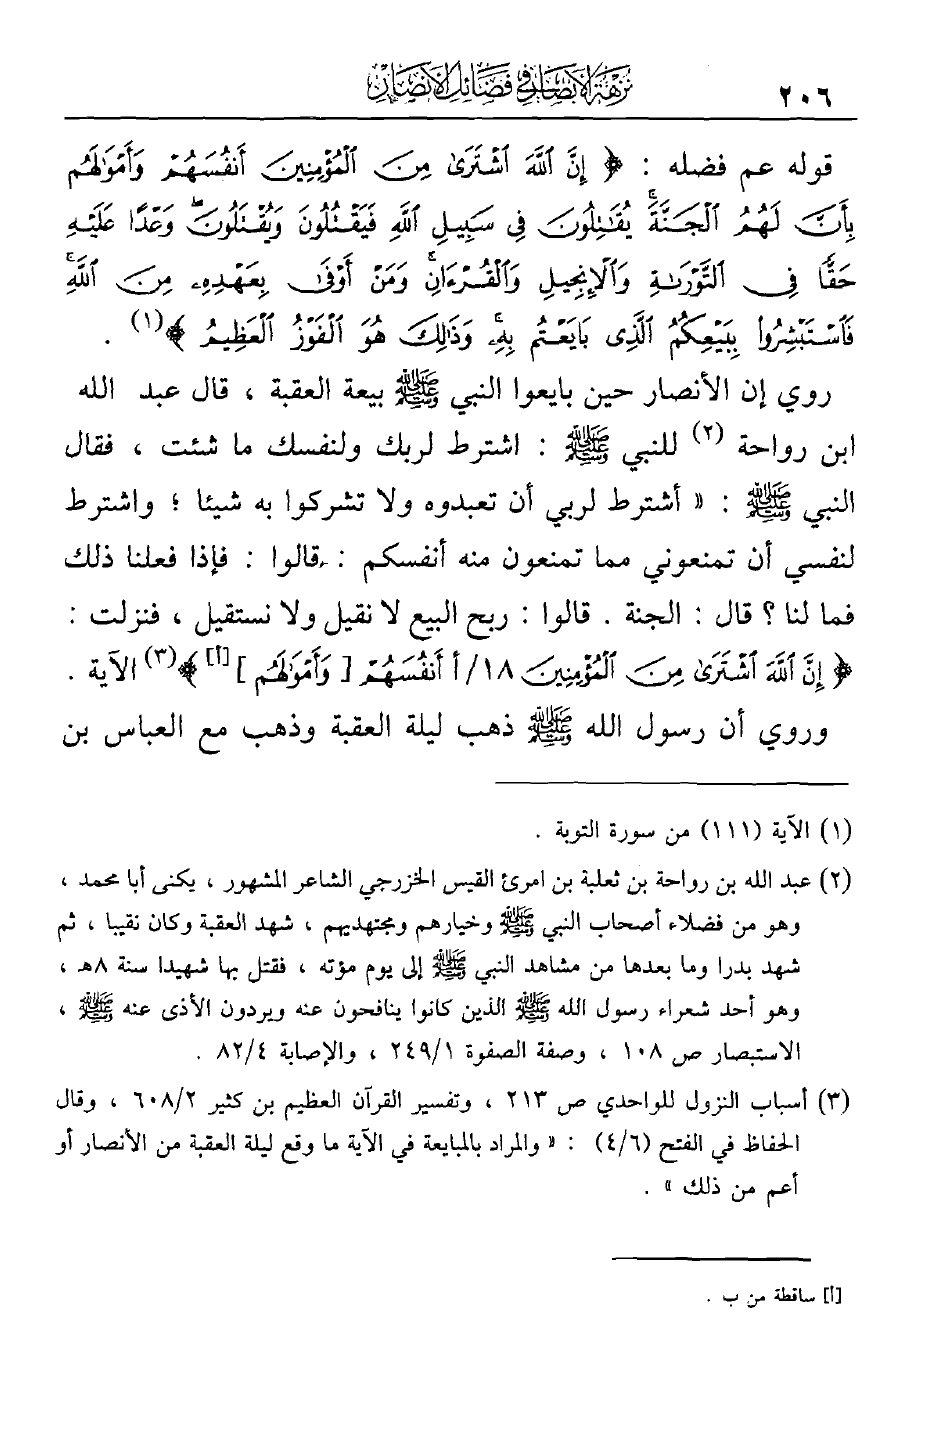 ٢٠٦
نزهة الأبصار في فضائل الأنصار
قوله عم فضله : ﴿ إِنَّ ٱللَّهَ ٱشْتَرَىٰ مِنَ ٱلْمُؤْمِنِينَ أَنفُسَهُمْ وَأَمْوَٰلَهُم
بِأَنَّ لَهُمُ ٱلْجَنَّةَ ۚ يُقَٰتِلُونَ فِى سَبِيلِ ٱللَّهِ فَيَقْتُلُونَ وَيُقْتَلُونَ ۖ وَعْدًا عَلَيْهِ
حَقًّا فِى ٱلتَّوْرَىٰةِ وَٱلْإِنجِيلِ وَٱلْقُرْءَانِ ۚ وَمَنْ أَوْفَىٰ بِعَهْدِهِۦ مِنَ ٱللَّهِ ۚ
فَٱسْتَبْشِرُوا۟ بِبَيْعِكُمُ ٱلَّذِى بَايَعْتُم بِهِۦ ۚ وَذَٰلِكَ هُوَ ٱلْفَوْزُ ٱلْعَظِيمُ ﴾(١) .
روي إن الأنصار حين بايعوا النبي ﷺ بيعة العقبة ، قال عبد الله
ابن رواحة (٢) للنبي ﷺ : اشترط لربك ولنفسك ما شئت ، فقال
النبي ﷺ : « أشترط لربي أن تعبدوه ولا تشركوا به شيئا ؛ واشترط
لنفسي أن تمنعوني مما تمنعون منه أنفسكم : قالوا : فإذا فعلنا ذلك
فما لنا ؟ قال : الجنة . قالوا : ربح البيع لا نقيل ولا نستقيل ، فنزلت :
﴿ إِنَّ ٱللَّهَ ٱشْتَرَىٰ مِنَ ٱلْمُؤْمِنِينَ ١٨/أ أَنفُسَهُمْ [ وَأَمْوَٰلَهُم ] [أ] ﴾(٣) الآية .
وروي أن رسول الله ﷺ ذهب ليلة العقبة وذهب مع العباس بن
(١) الآية (١١١) من سورة التوبة .
(٢) عبد الله بن رواحة بن ثعلبة بن امرئ القيس الخزرجي الشاعر المشهور ، يكنى أبا محمد ،
وهو من فضلاء أصحاب النبي ﷺ وخيارهم ومجتهديهم ، شهد العقبة وكان نقيبا ، ثم
شهد بدرا وما بعدها من مشاهد النبي ﷺ إلى يوم مؤته ، فقتل بها شهيدا سنة ٨هـ ،
وهو أحد شعراء رسول الله ﷺ الذين كانوا ينافحون عنه ويردون الأذى عنه ﷺ ،
الاستبصار ص ١٠٨ ، وصفة الصفوة ٢٤٩/١ ، والإصابة ٨٢/٤ .
(٣) أسباب النزول للواحدي ص ٢١٣ ، وتفسير القرآن العظيم بن كثير ٦٠٨/٢ ، وقال
الحفاظ في الفتح (٤/٦) : « والمراد بالمبايعة في الآية ما وقع ليلة العقبة من الأنصار أو
أعم من ذلك » .
[أ] ساقطة من ب .